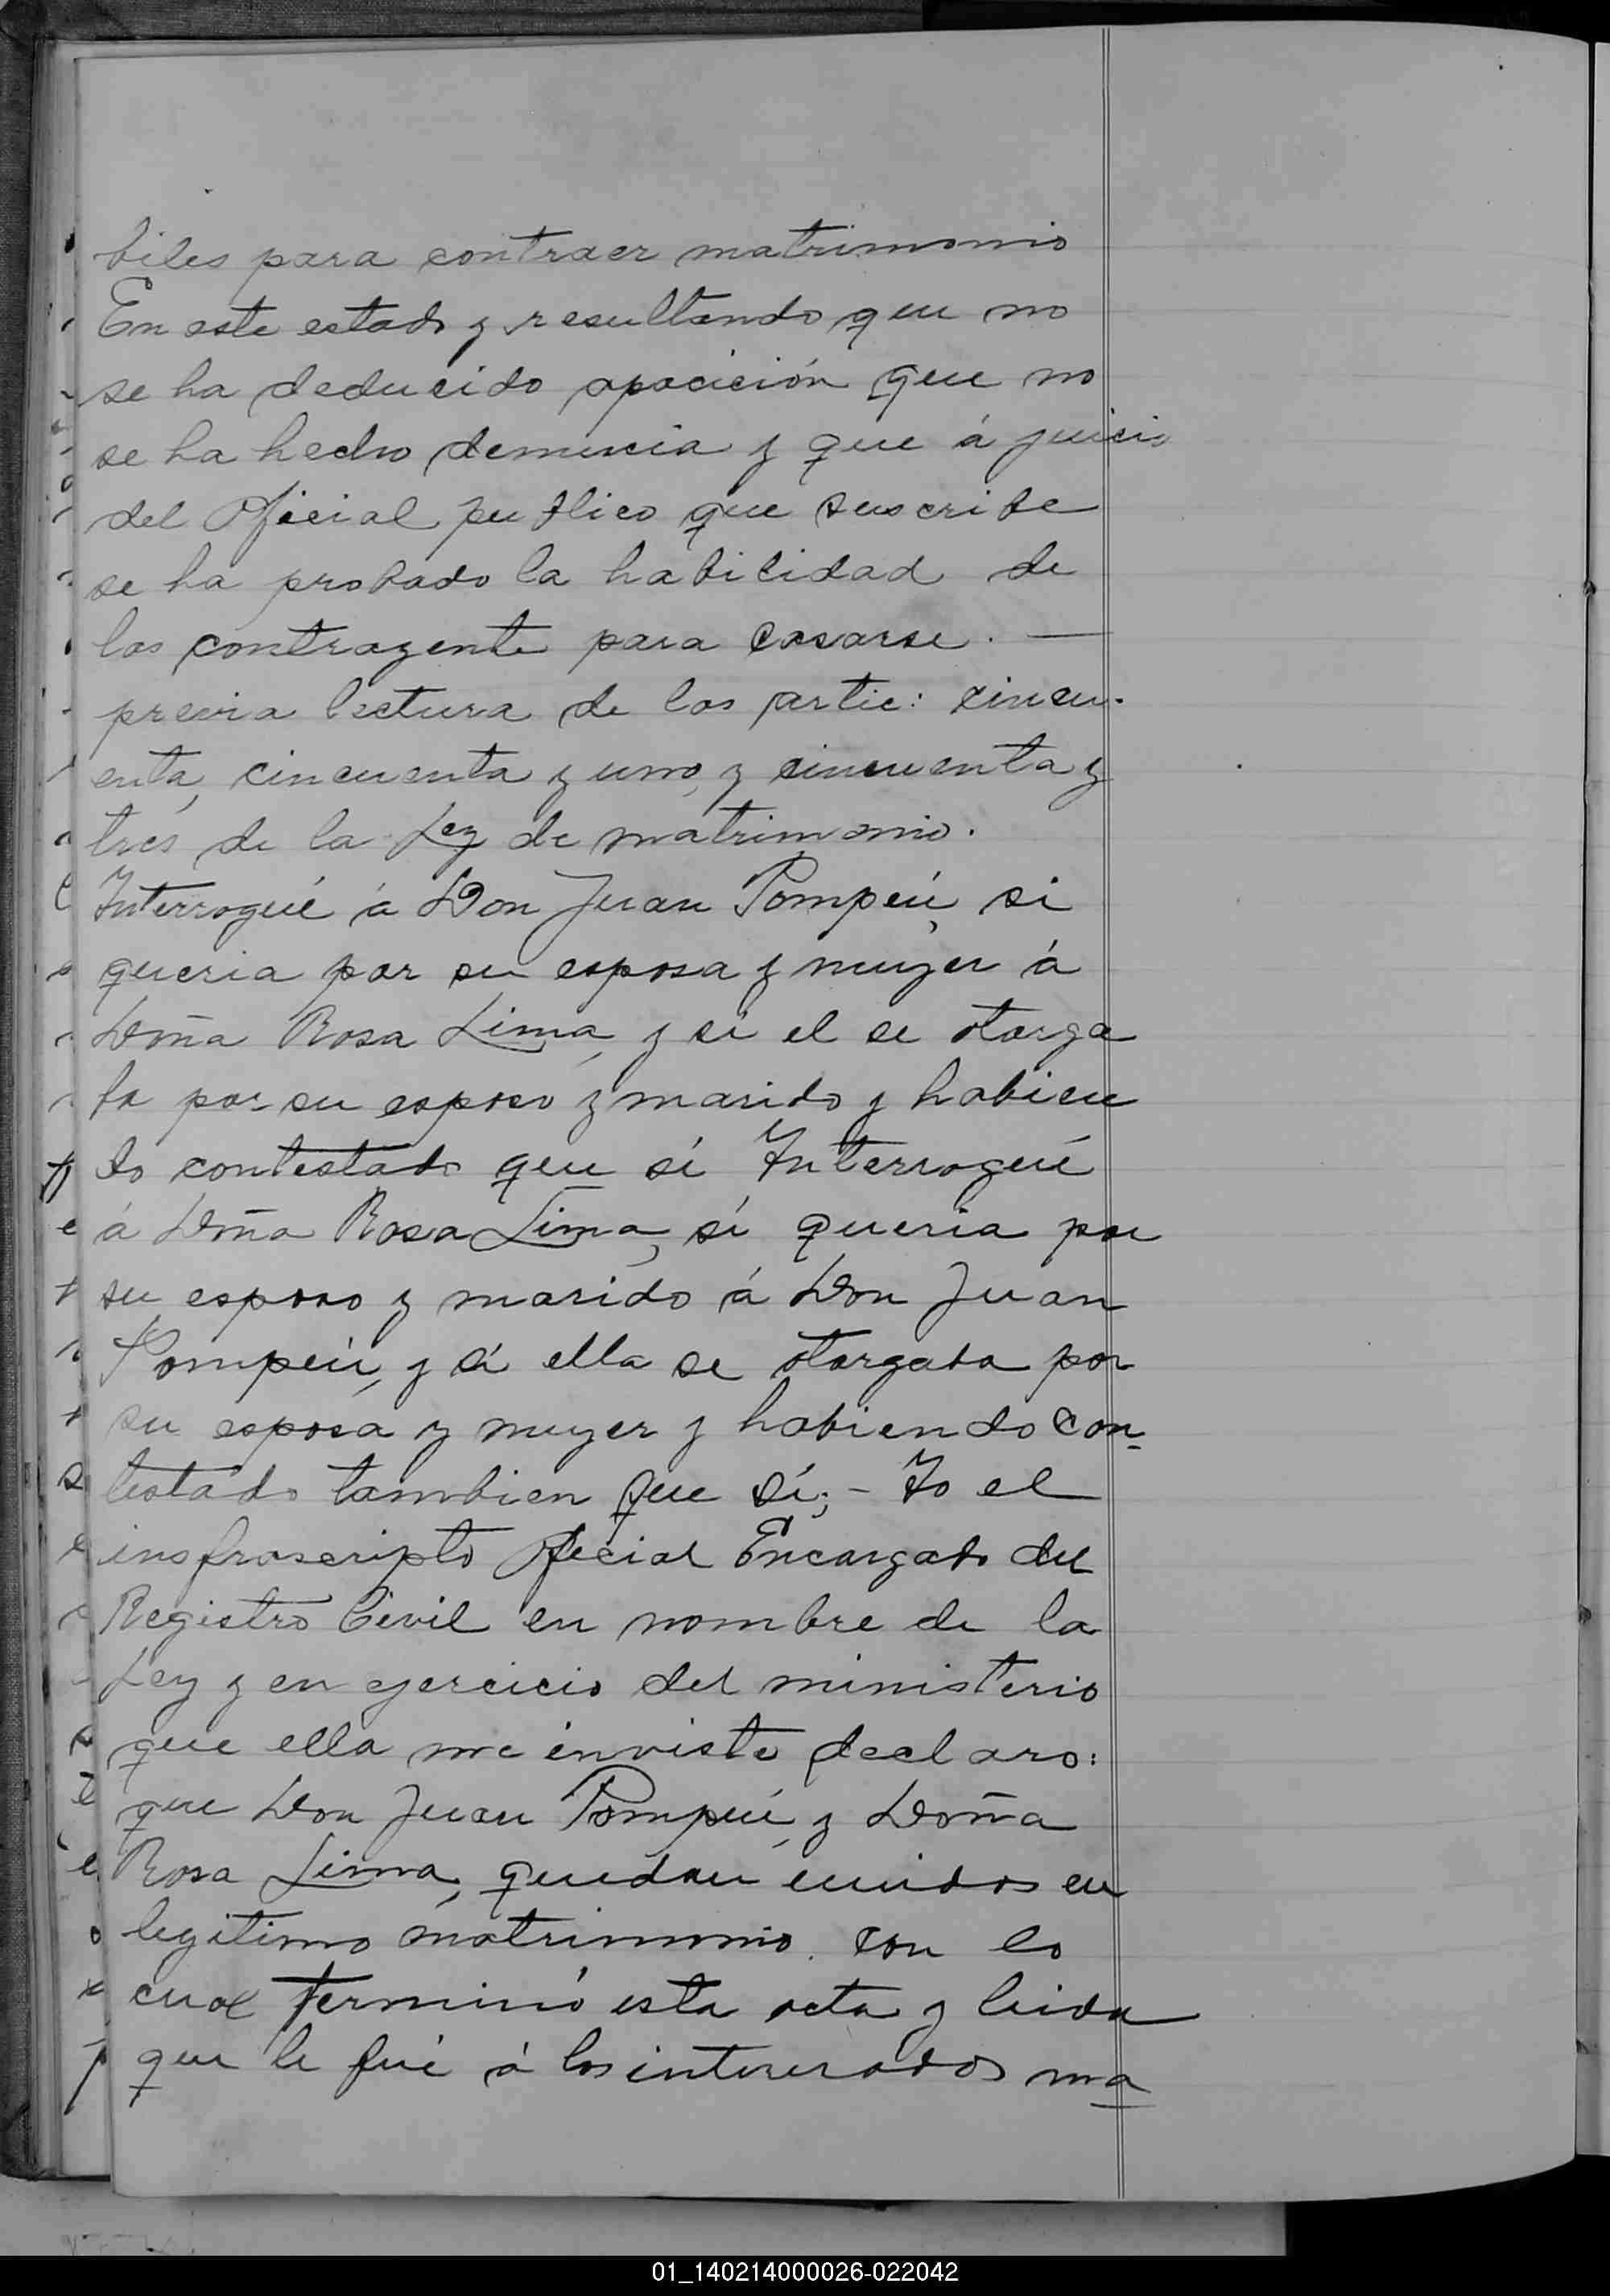 biles para contraer matrimonio
En este estado y resultando que no
se ha deducido oposición que no
se ha hecho denuncia y que á juicio
del Oficial publico que suscribe
se ha probado la habilidad de
los contrayente para casarse. —
previa lectura de los artic: cincu-
enta, cincuenta y uno, y cincuenta y
tres de la Ley de matrimonio.
Interrogué á Don Juan Pompeú, si
queria por su esposa y muyer á
Doña Rosa Lima, y si el se otorga
ba por su esposo y marido y habien
do contestado que sí Interrogué
á Doña Rosa Lima, sí queria por
su esposo y marido á Don Juan
Pompeú, y si ella se otorgaba por
su esposa y muyer y habiendo con-
testado tambien que sí; - Yo el
insfrascripto Oficial Encargado del
Registro Civil en nombre de la
Ley y en ejercicio del ministerio
que ella me inviste declaro:
que Don Juan Pompeú, y Doña
Rosa Lima, quedan unidos en
legitimo matrimonio. con lo
cual terminó esta acta y leida
que le fué á los interesados ma
01_140214000026-022042